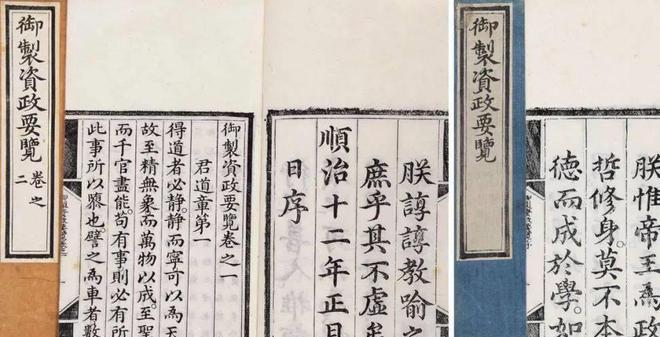 御製資政要覽 卷之二
朕諄諄教喻之
庶乎其不虛
順治十二年正月
日序
御製資政要覽卷之一
君道章第一
得道者必靜。靜而寧可以為天
故至精無象而萬物以成至聖
而千官盡能。苟有事則必有所
此事所以隳也。譬之為車者數
御製資政要覽
朕惟帝王為政
哲修身。莫不本
德而成於學。如